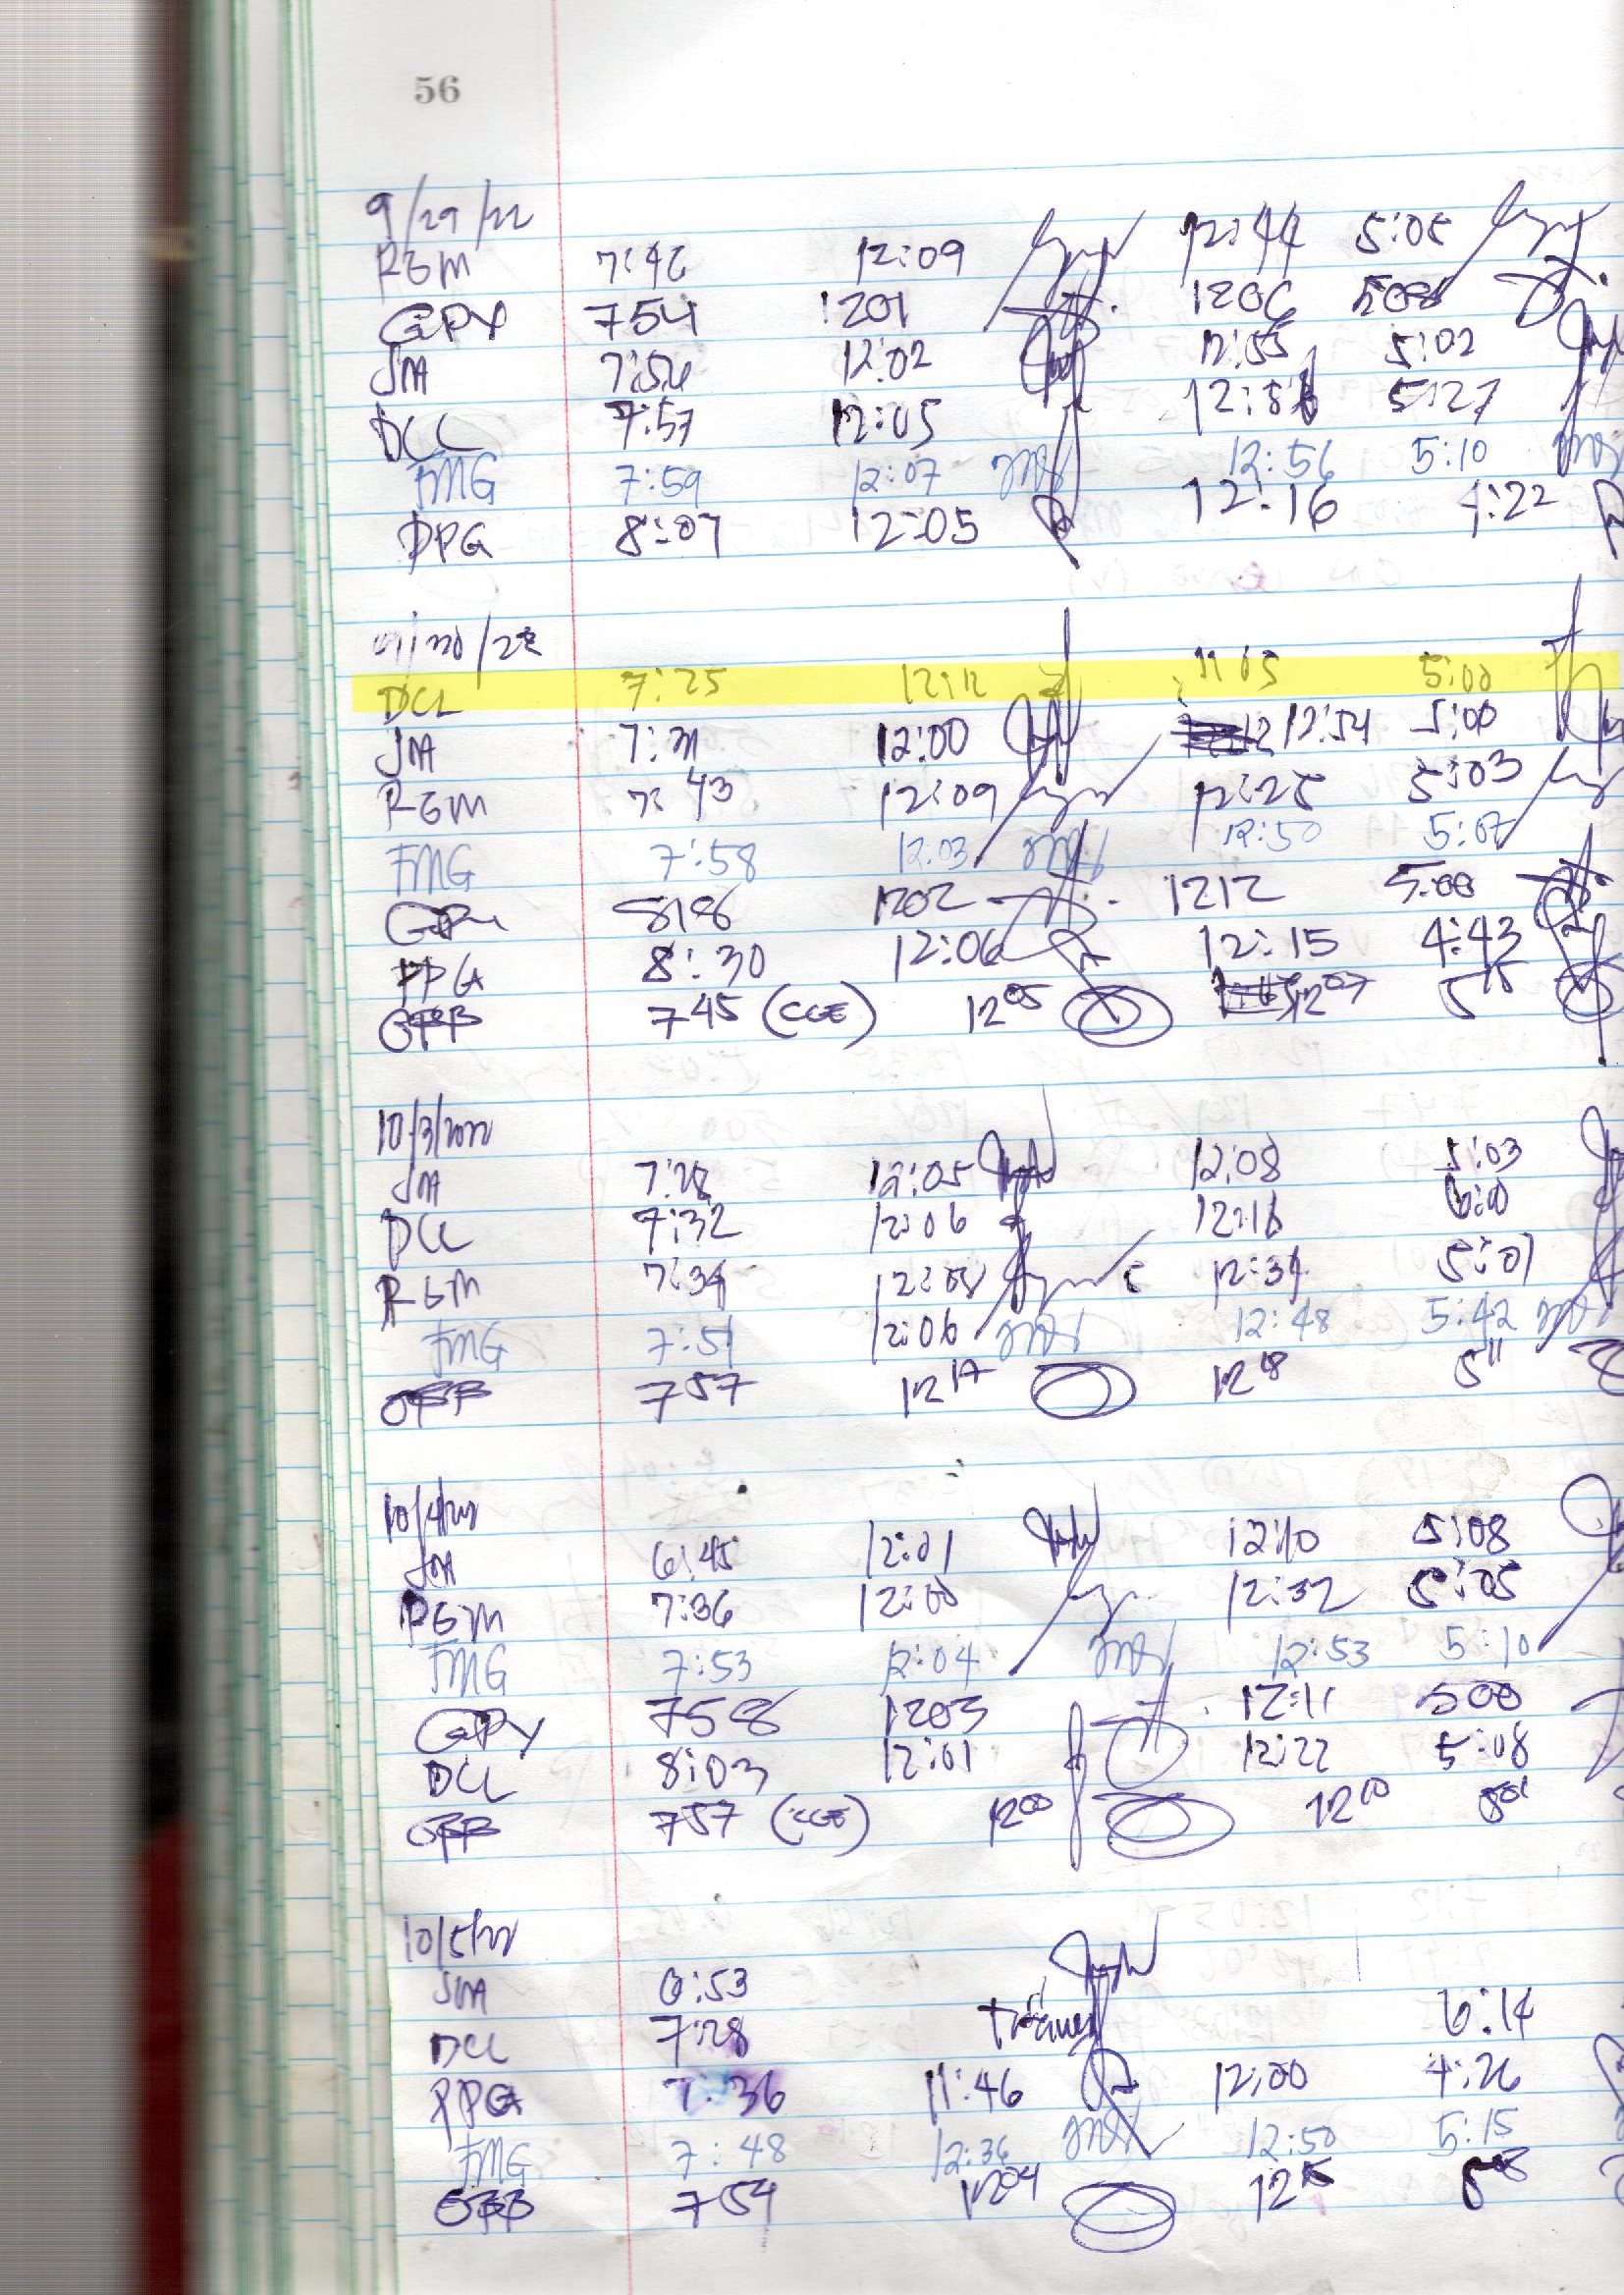 56
9/29/22
RGM 7:46 12:09 12:44 5:05
GPY 754 1201 1206 508
JMA 7:56 12:02 12:55 5:02
DCL 7:57 12:05 5:27
FMG 7:59 12:07 12:56 5:10
PPG 8:07 12:05 12:16 4:22
DCL 7:25 12:12 5:00
JMA 12:00 12:54 5:00
RGM 7:43 12:09 12:25 5:03
FMG 7:58 12:03 12:50 5:07
GPY 818 1202 1212 5:00
PPG 8:30 12:06 12:15 4:43
745 (CCE) 12 05 12 07 5 15
10/3/2022
JMA 7:28 12:05 12:08 5:03
DCL 7:32 12:06 12:16
RGM 7:34 12:08 12:34 5:01
FMG 7:51 12:06 12:48 5:42
7 57 12 17 12 18 5 11
10/4/22
JMA 6:45 12:01 12:10 5:08
RGM 7:36 12:00 12:32 5:05
FMG 7:53 12:04 12:53 5:10
GPY 758 1203 12:11 500
DCL 8:03 12:01 12:22 5:08
7 57 (CCE) 12 00 12 10 5 01
10/5/22
JMA 6:53
DCL 7:28 6:14
PPG 7:36 11:46 12:00 4:26
FMG 7:48 12:36 12:50 5:15
7 54 12 04 12 15 5 08